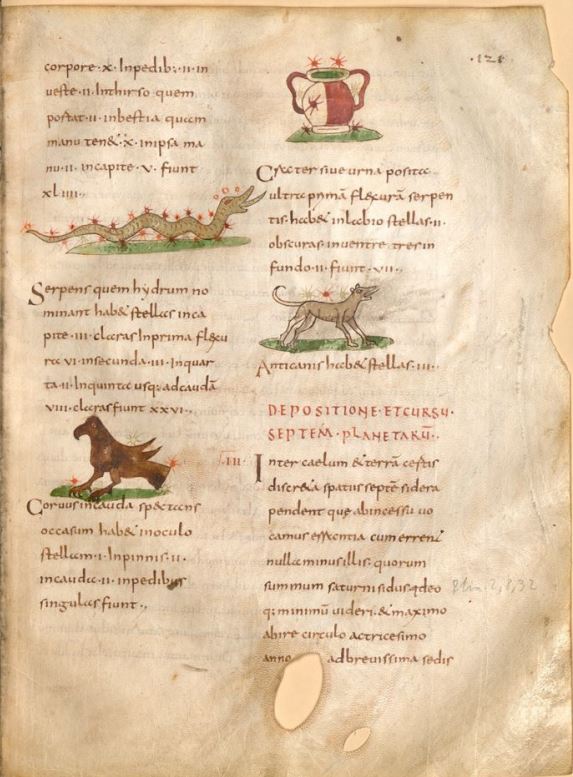 corpore·x· Inpedib;·ii·in
ueste·ii·Inthirso quem
portat·ii·inbestia quam
manu ten&·x·inipsa ma
nu·ii·incapite·v·fiunt
xliiii·
Serpens quem hydrum no
minant hab& stellas inca
pite·iii·claras Inprima flexu
ra vi·insecunda·iii·Inquar
ta·ii·Inquinta usq; adcaudā
viii·claras fiunt xxvi·
Coruus incauda spectans
occasum hab& inoculo
stellam·i·Inpinnis·ii·
incauda·ii·inpedibus
singulas fiunt·
·121·
Crater siue urna posita
ultra primā flexurā serpen
tis·hab& inlabio stellas·ii·
obscuras·inuentre·tres in
fundo·ii·fiunt·vii·
Anticanis hab& stellas·iii·
DEPOSITIONE·ETCURSU·
SEPTEM·PLANETARŪ·
·III·
Inter caelum & terrā certis
discreta spatiis septē sidera
pendent que abincessu uo
camus errantia cum errent
nulla minus illis·quorum
summum saturni sidus·ideo
q; minimū uideri·& maximo
abire circulo actricesimo
anno adbreuissima sedis
Plin. 2, 8, 32